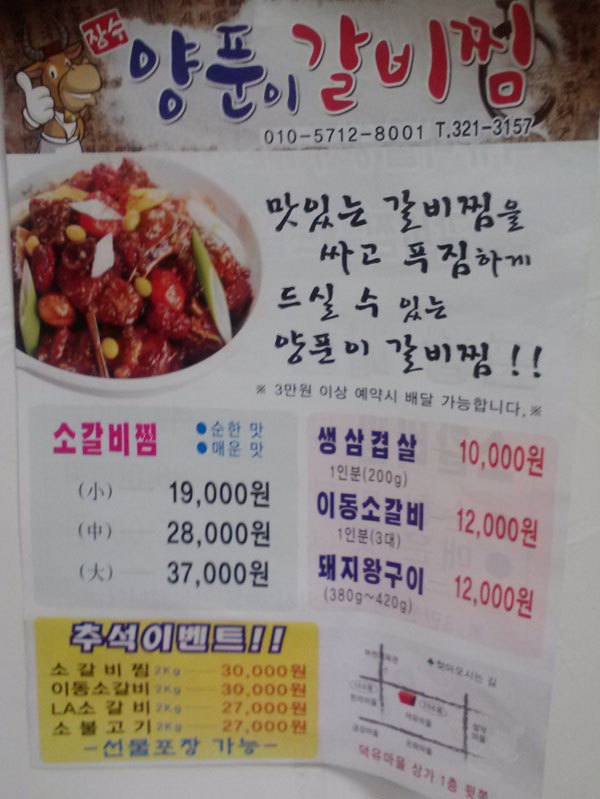 장수
양푼이 갈비찜
010-5712-8001 T.321-3157
맛있는 갈비찜을
싸고 푹짐하게
드실 수 있는
양푼이 갈비찜 !!
※ 3만원 이상 예약시 배달 가능합니다.※
소갈비찜
●순한 맛
●매운 맛
(小) 19,000원
(中) 28,000원
(大) 37,000원
생삼겹살 10,000원
1인분(200g)
이동소갈비 12,000원
1인분(3대)
돼지왕구이 12,000원
(380g~420g)
추석이벤트!!
소갈비찜 2Kg 30,000원
이동소갈비 2Kg 30,000원
LA소갈비 2Kg 27,000원
소불고기 2Kg 27,000원
-선물포장 가능-
♠찾아오시는 길
덕유마을 상가 1층 뒷쪽